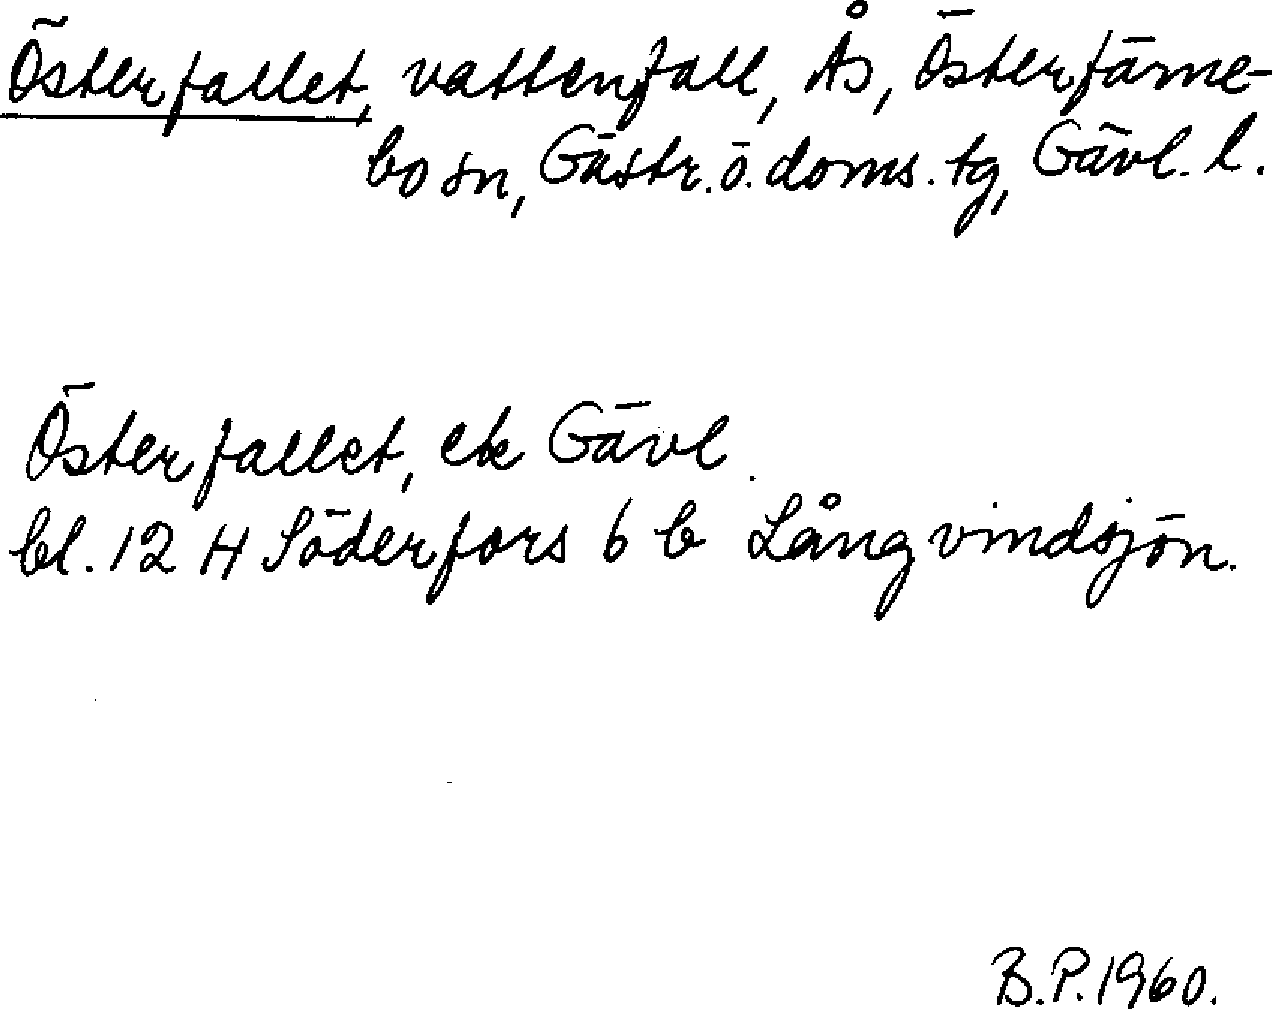 Österfallet, vattenfall, Ås, Österfärne-
bo sn, Gästr. ö. doms. tg, Gävl. l.
Österfallet, ek Gävl.
bl. 12 H Söderfors 6 b Långvindsjön.
B.P. 1960.